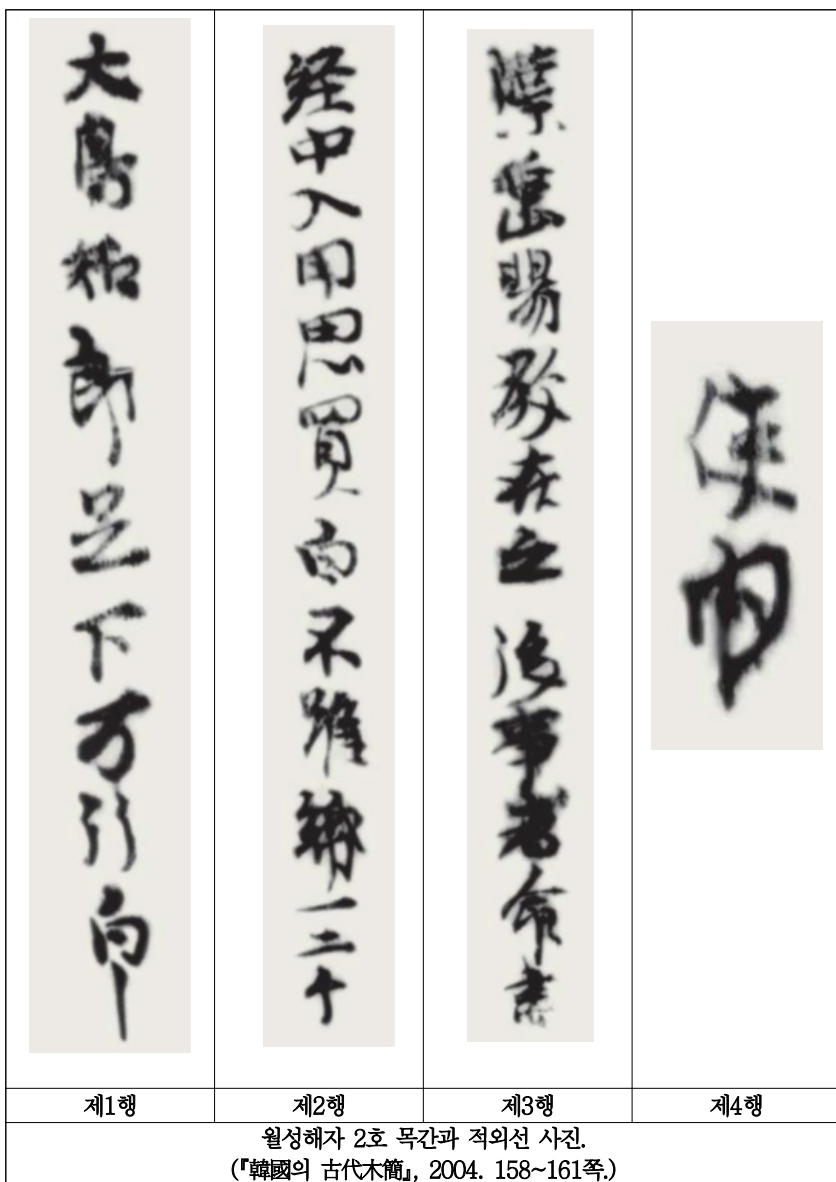 大烏知郎足下万拜白丨
経中入用思買白不雖紙一二个
牒垂賜教在之 後事者命盡
使内
제1행 제2행 제3행 제4행
월성해자 2호 목간과 적외선 사진.
(『韓國의 古代木簡』, 2004. 158~161쪽.)